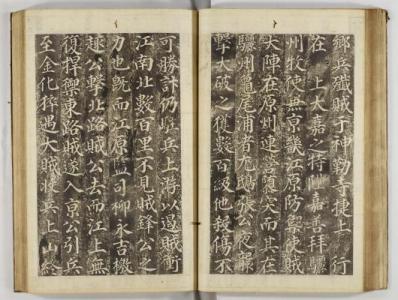 鄕兵殲賊于神勒寺捷上 行
在 上大嘉之特陞嘉善拜驪
州牧使兼京畿江原防禦使賊
大陣在原州連營突而其在
驪州龜尾浦者尤鴟張公夜
擊大破之獲數百級他殺傷不
可勝計仍兵上游以遏賊衝
江南北數百里不見賊鋒公之
力也旣而江原監司柳永吉檄
趣公擊北路賊公去而江上無
復捍禦東路賊遂入京公引兵
至金化猝遇大賊將兵上山終